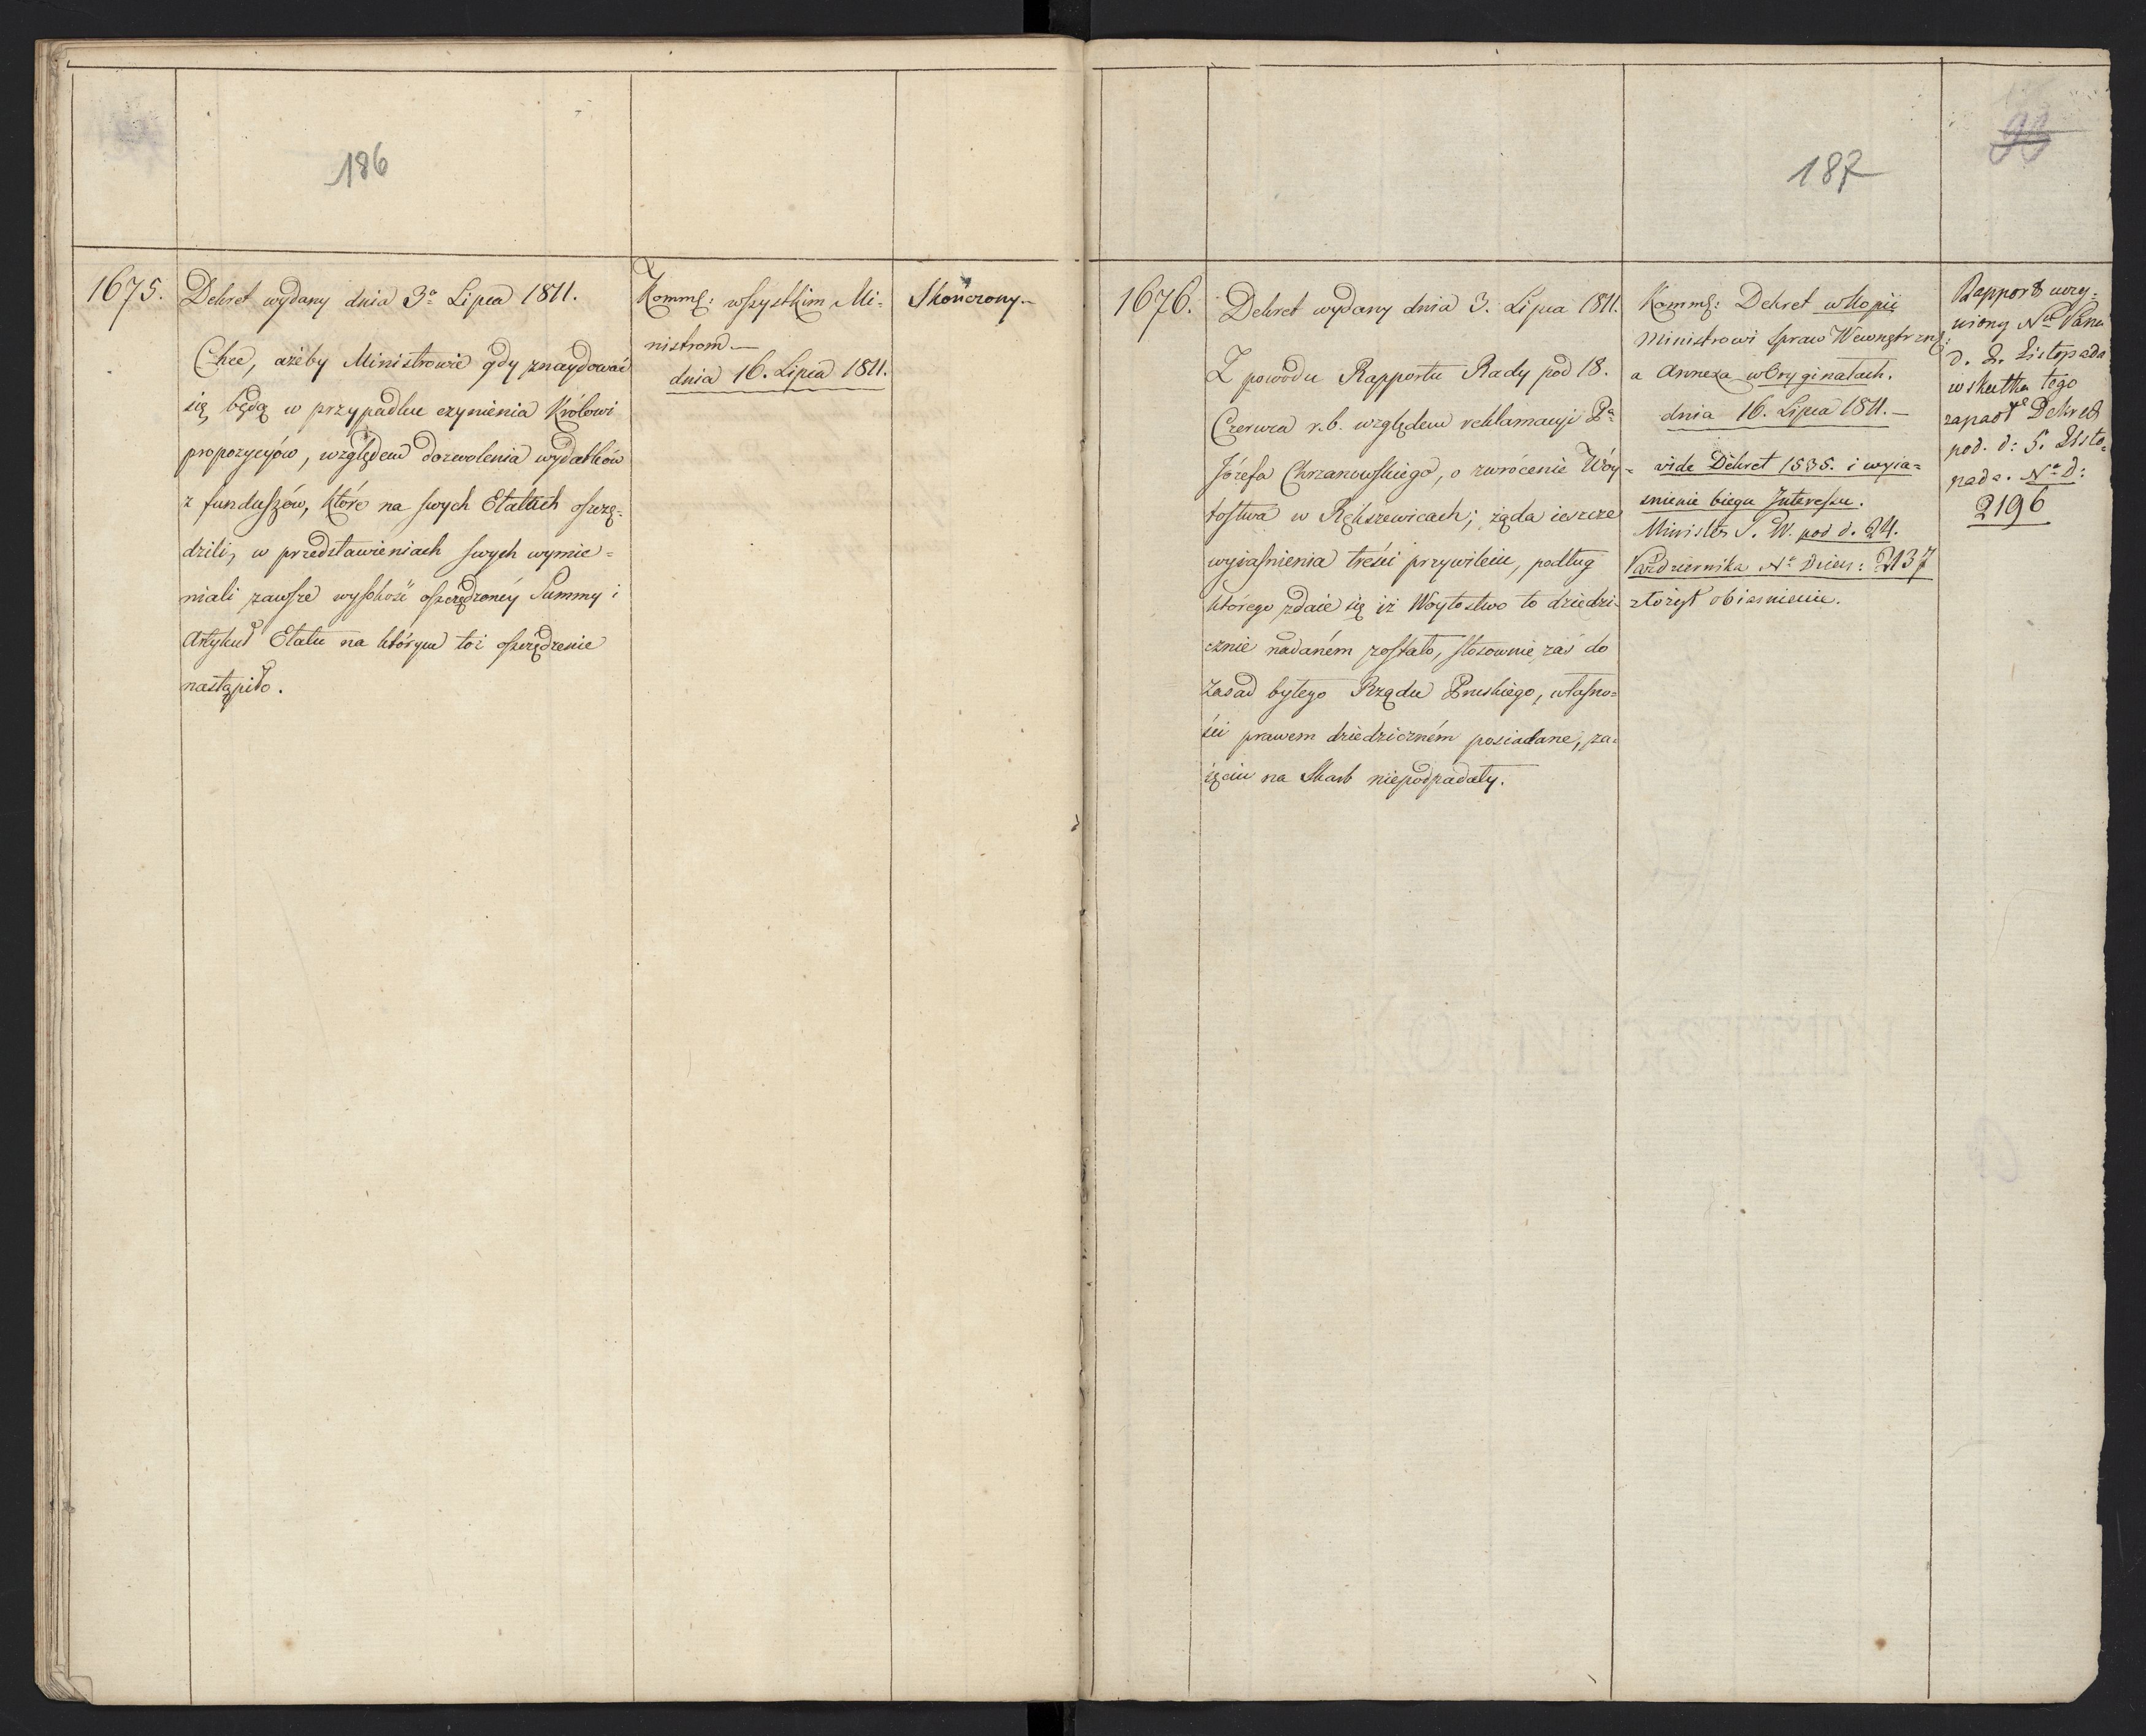 186
1675.
Dekret wydany dnia 3º Lipca 1811.
Chce, ażeby Ministrowie gdy znaydować
się będą w przypadku czynienia Królowi
propozycyów, względem dozwolenia wydatków
z funduszów, które na swych Etatach oszczę-
dzili, w przedstawieniach swych wymie=
niali zawsze wysokość oszczędzonéy Summy i
Artykuł Etatu na którym toż oszczędzenie
nastąpiło.
Komm: wszystkim Mi-
nistrom.—
dnia 16. Lipca 1811.
Skończony.—
187
99
1676.
Dekret wydany dnia 3. Lipca 1811.
Z powodu Rapportu Rady pod 18.
Czerwca r.b. względem reklamacyi Pª
Józefa Chrzanowskiego, o zwrócenie Wóy=
tostwa w Rększewicach; żąda ieszcze
wyiaśnienia treści przywileiu, podług
którego zdaie się iż Woytostwo to dziedzi-
cznie nadaném zostało, stosownie zaś do
Zasad byłego Rządu Pruskiego, własno=
ści prawem dziedziczném posiadane, za-
ięciu na Skarb niepodpadały.
Komm: Dekret w kopii
Ministrowi Spraw Wewnętrzn:
a Annexa w Oryginałach.
dnia 16. Lipca 1811.—
vide Dekret 1535. i wyia=
śnienie biegu Interessu.
Minister S. W. pod d. 24.
Października Nº Dzien: 2137
złożył obiaśnienie.
Rapport uczy=
niony Nu Panu
d. 2. Listopada
w skutku tego
zapadł Dekret
pod. d: 5. Listo=
pada. Nº D:
2196